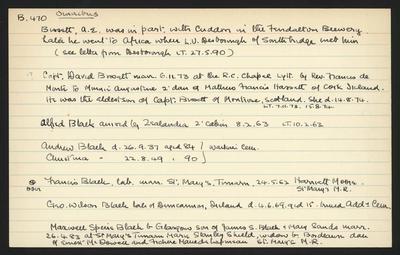 B. 470 Omnibus
Bissett, A.E. was in part. with Cuddon in the Ferndalton Brewery
Later he went to Africa where L.U. Desborough of Southbridge met him
(see letter from Desborough LT. 27.5.90)
Capt. David Brooth marr. 6.11.73 at the R.C. Chapel Lytt. by Rev Francis de
to Minnie Augustine 2' dau of Matheus Francis Hassett of Cork Ireland.
He was the eldest son of Capt. of Montrose, Scotland. She d. 14.8.74.
LT. 7.11.73, 15.8.74
Alfred Black arrived by Zealandia 2' Cabin 8.2.63 LT. 10.2.63
Andrew Black d. 26.9.37 aged 84 } Cem.
Christina " 22.8.49 . 90 }
Francis Black, lab. marr. St. Mary's, Timaru, 24.5.62 Harriett Moore.
St Mary's M.R.
Geo. Wilson Black late of Duncannon, Ireland d. 4.6.69. agd 15. buried Add. St Cem.
Maxwell Black b Glasgow son of James S. Black & May Sande marr.
26.4.83 at St Mary's Timaru Mary Stanley Shield, widow b Bordeaux dau
of Mc Dowell and Lapresan St. Mary's M.R.